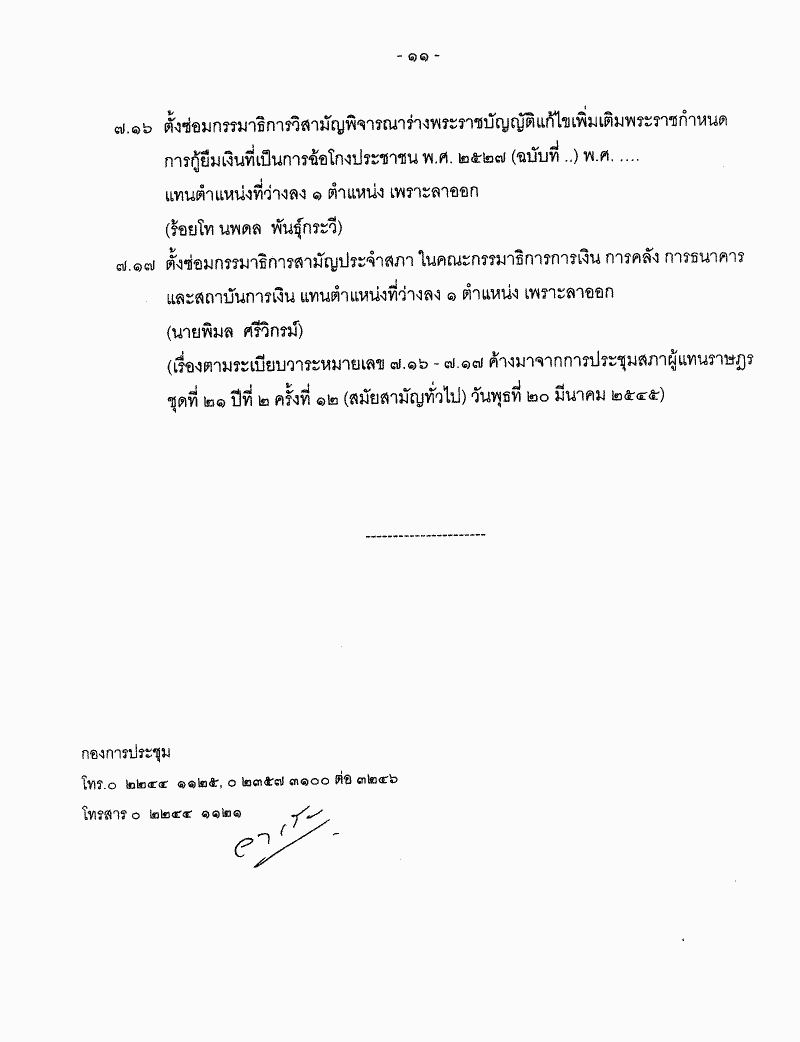 - ๑๑ -
๗.๑๖ ตั้งซ่อมกรรมาธิการวิสามัญพิจารณาร่างพระราชบัญญัติแก้ไขเพิ่มเติมพระราชกำหนด
การกู้ยืมเงินที่เป็นการฉ้อโกงประชาชน พ.ศ. ๒๕๒๗ (ฉบับที่ ..) พ.ศ. ....
แทนตำแหน่งที่ว่างลง ๑ ตำแหน่ง เพราะลาออก
(ร้อยโท นพดล พันธุ์กระวี)
๗.๑๗ ตั้งซ่อมกรรมาธิการสามัญประจำสภา ในคณะกรรมาธิการการเงิน การคลัง การธนาคาร
และสถาบันการเงิน แทนตำแหน่งที่ว่างลง ๑ ตำแหน่ง เพราะลาออก
(นายพิมล ศรีวิกรม์)
(เรื่องตามระเบียบวาระหมายเลข ๗.๑๖ - ๗.๑๗ ค้างมาจากการประชุมสภาผู้แทนราษฎร
ชุดที่ ๒๑ ปีที่ ๒ ครั้งที่ ๑๒ (สมัยสามัญทั่วไป) วันพุธที่ ๒๐ มีนาคม ๒๕๔๕)
----------------------
กองการประชุม
โทร.๐ ๒๒๔๔ ๑๑๒๕, ๐ ๒๓๕๗ ๓๑๐๐ ต่อ ๓๒๔๖
โทรสาร ๐ ๒๒๔๔ ๑๑๒๑